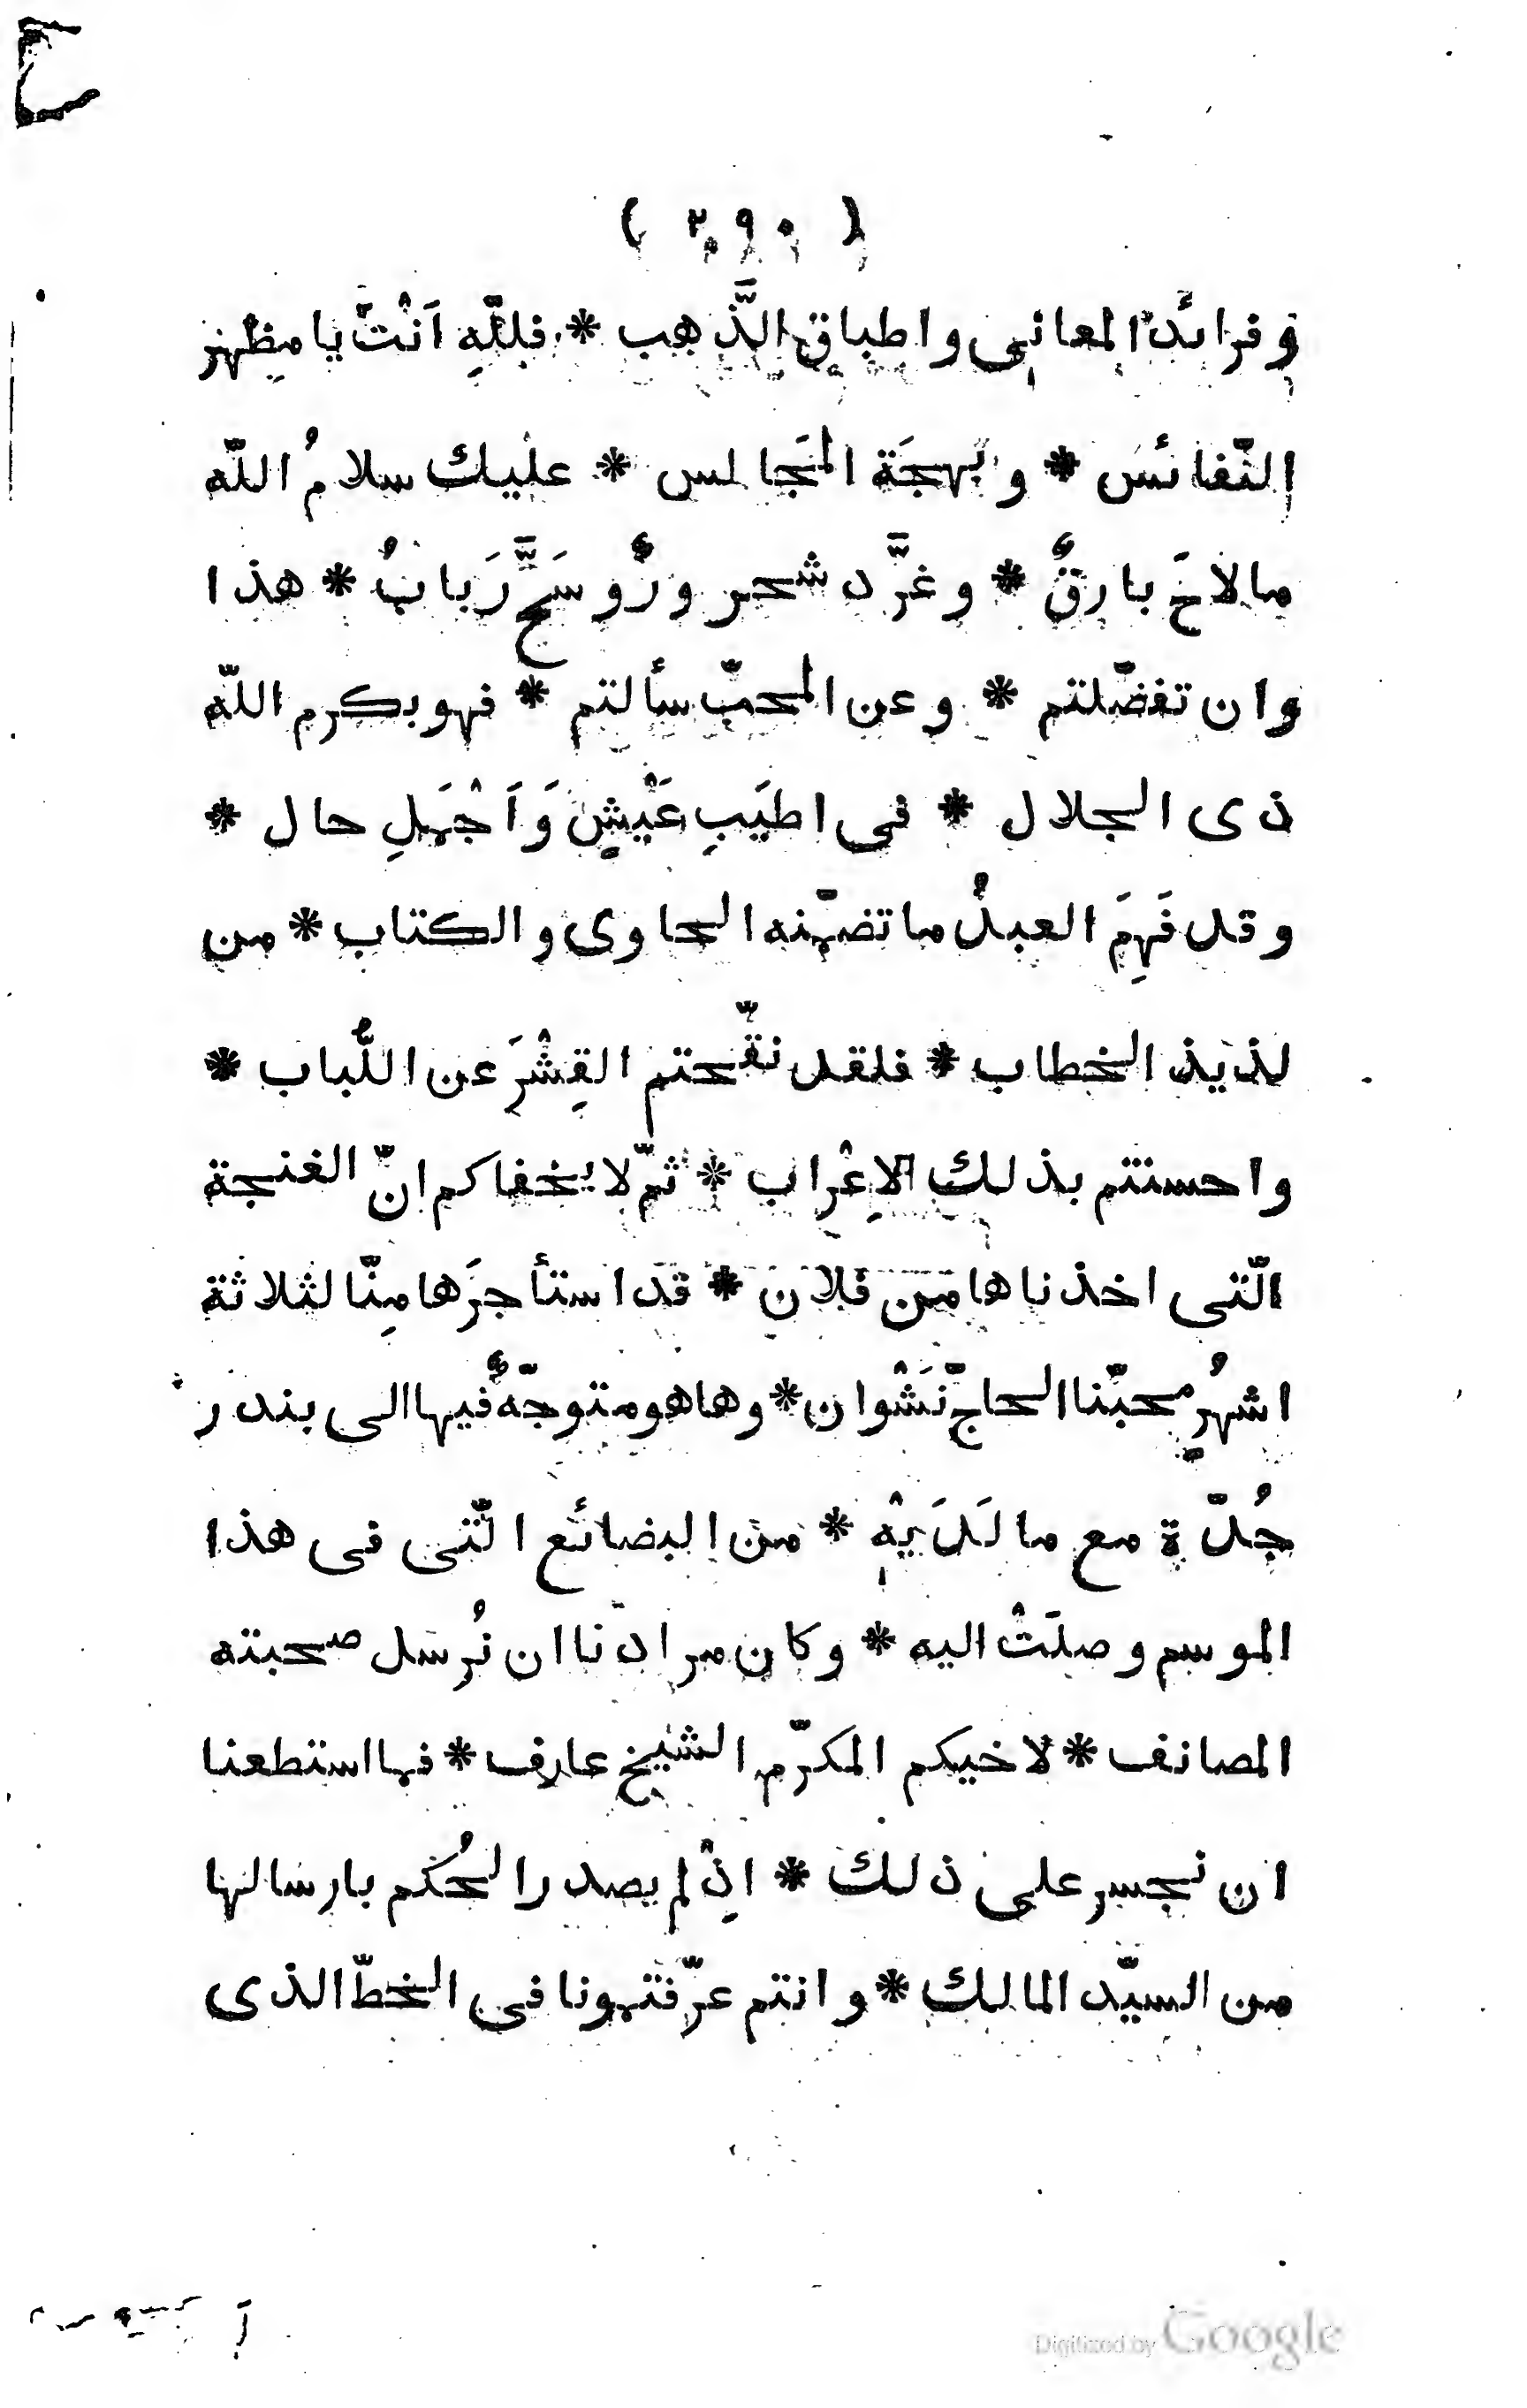 ( ٢٩٠ )
وفرائد المعاني واطباق الذَّهب * فللّٰهِ اَنْتَ يا مظهر
النّفائس * و بهجَة المَجالس * عليك سلامُ اللّٰه
مالاحَ بارقٌ * وغرَّد شحرورٌ وسَحَّ رَبابٌ * هذا
وان تفضّلتم * وعن المحبّ سألتم * فهو بكرم اللّٰه
ذى الجلال * فى اطيَبِ عَيْشٍ وَاَجْمَلِ حال *
وقد فَهِمَ العبدُ ما تضمّنه الحاوى والكتاب * من
لذيذ الخطاب * فلقد نقّحتم القِشْرَ عن اللُّباب *
واحسنتم بذلك الاِعْراب * ثمّ لا يخفاكم انّ الغنجة
الّتى اخذناها من فلان * قد استأجرَها مِنّا لثلاثة
اشهُرٍ محبّنا الحاجّ نَشْوان * وها هو متوجّهٌ فيها الى بندر
جُدّة مع ما لَدَيْهِ * من البضائع الّتى فى هذا
الموسم وصلَتْ اليه * وكان مرادنا ان نُرسل صحبته
المصانف * لاخيكم المكرّم الشيخ عارف * فما استطعنا
ان نجسر على ذلك * اِذْ لم يصدر الحُكم بارسالها
من السيّد المالك * وانتم عرّفتمونا فى الخطّ الذى
Digitized by Google